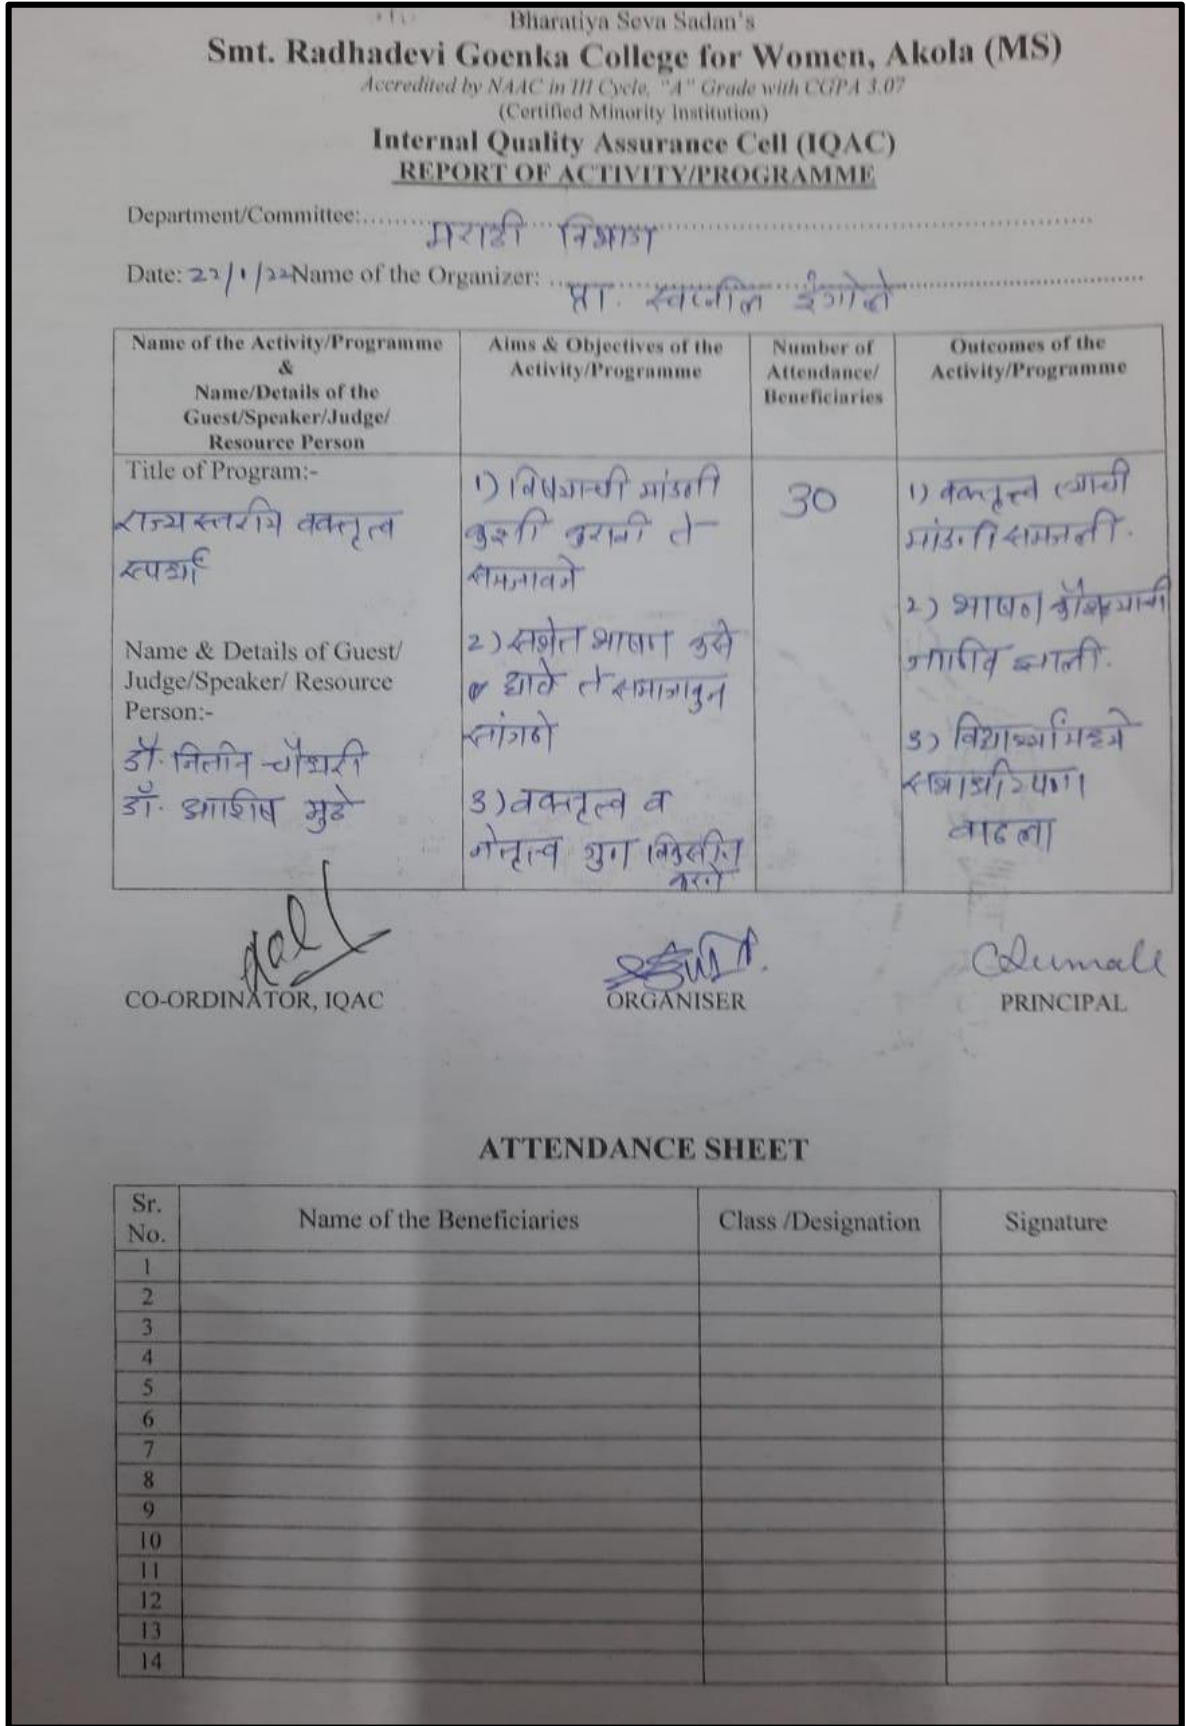 Bharatiya Seva Sadan's
Smt. Radhadevi Goenka College for Women, Akola (MS)
Accredited by NAAC in III Cycle, "A" Grade with CGPA 3.07
(Certified Minority Institution)
Internal Quality Assurance Cell (IQAC)
REPORT OF ACTIVITY/PROGRAMME
Department/Committee: मराठी विभाग
Date: 22/1/22 Name of the Organizer: प्रा. स्वप्नील इंगोले
Name of the Activity/Programme
&
Name/Details of the
Guest/Speaker/Judge/
Resource Person
Aims & Objectives of the
Activity/Programme
Number of
Attendance/
Beneficiaries
Outcomes of the
Activity/Programme
Title of Program:-
राज्यस्तरीय वक्तृत्व
स्पर्धा
Name & Details of Guest/
Judge/Speaker/ Resource
Person:-
डॉ. नितीन चौधरी
डॉ. आशिष मुढे
1) विषयाची मांडणी
कशी करावी ते
समजावने
2) सभेत भाषण कसे
द्यावे ते समाजावुन
सांगणे
3) वक्तृत्व व
नेतृत्व गुण विकसीत
करणे
30
1) वक्तृत्त्व त्याची
मांडणी समजली.
2) भाषण कौशल्याची
जाणीव झाली.
3) विद्यार्थ्यांमध्ये
सभाधीटपणा
वाढला
CO-ORDINATOR, IQAC
ORGANISER
PRINCIPAL
ATTENDANCE SHEET
Sr.
No.
Name of the Beneficiaries
Class /Designation
Signature
1
2
3
4
5
6
7
8
9
10
11
12
13
14